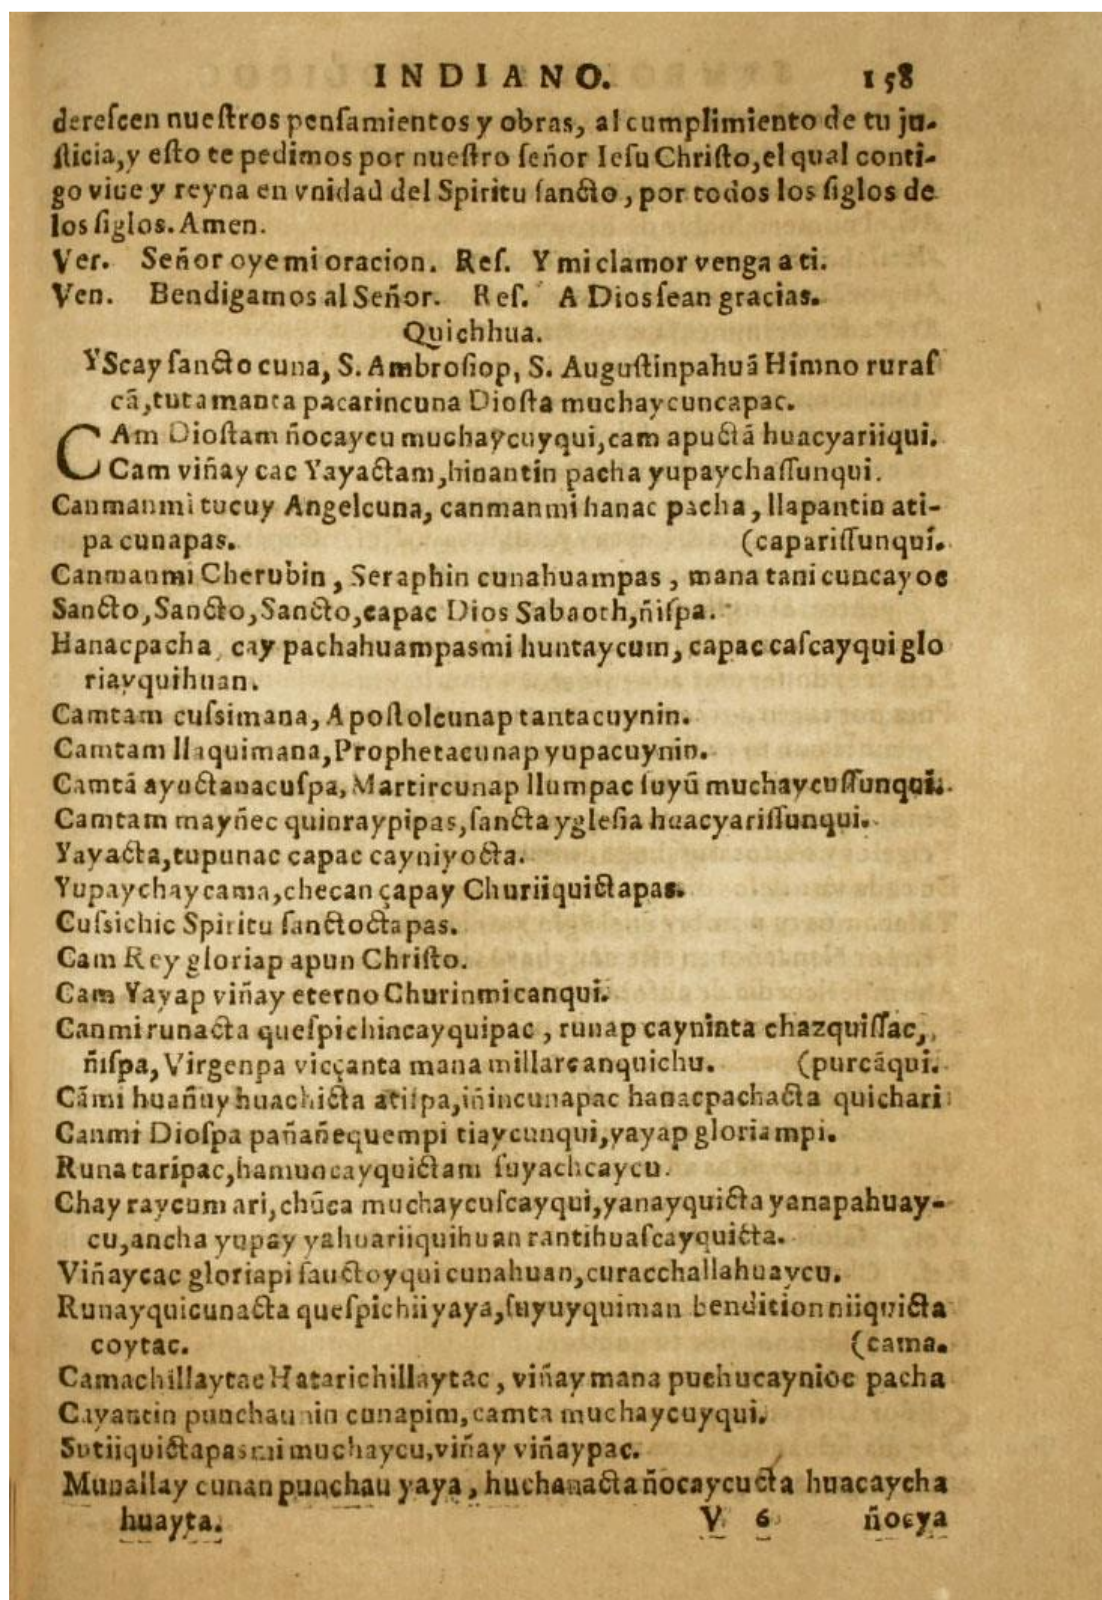 INDIANO. 158
derescen nuestros pensamientos y obras, al cumplimiento de tu ju-
sticia, y esto te pedimos por nuestro señor Iesu Christo, el qual conti-
go viue y reyna en vnidad del Spiritu sancto, por todos los siglos de
los siglos. Amen.
Ver. Señor oye mi oracion. Res. Y mi clamor venga a ti.
Ven. Bendigamos al Señor. Res. A Dios sean gracias.
Quichhua.
YScay sancto cuna, S. Ambrosiop, S. Augustinpahuā Himno ruras
cā, tutamanta pacarincuna Diosta muchaycuncapac.
CAm Diostam ñocaycu muchaycuyqui, cam apuctā huacyariiqui.
Cam viñay cac Yayactam, hinantin pacha yupaychassunqui.
Canmanmi tucuy Angelcuna, canmanmi hanac pacha, llapantin ati-
pa cunapas. (caparissunqui.
Canmanmi Cherubin, Seraphin cunahuampas, mana tani cuncayoc
Sancto, Sancto, Sancto, capac Dios Sabaoth, ñispa.
Hanacpacha, cay pachahuampasmi huntaycum, capac cascayqui glo
riayquihuan.
Camtam cussimana, Apostolcunap tantacuynin.
Camtam llaquimana, Prophetacunap yupacuynin.
Camtā ayuctanacuspa, Martircunap llumpac suyū muchaycussunqui.
Camtam mayñec quinraypipas, sancta yglesia huacyarissunqui.
Yayacta, tupunac capac cayniyocta.
Yupaychaycama, checan çapay Churiiquictapas.
Cussichic Spiritu sanctoctapas.
Cam Rey gloriap apun Christo.
Cam Yayap viñay eterno Churinmicanqui.
Canmi runacta quespichincayquipac, runap cayninta chazquissac,
ñispa, Virgenpa vicçanta mana millarcanquichu. (purcāqui.
Cāmi huañuy huachicta atispa, iñincunapac hanacpachacta quichari
Canmi Diospa pañañequempi tiaycunqui, yayap gloriampi.
Runa taripac, hamuncayquictam suyachcaycu.
Chay raycum ari, chūca muchaycuscayqui, yanayquicta yanapahuay-
cu, ancha yupay yahuariiquihuan rantihuascayquicta.
Viñaycac gloriapi sauctoyqui cunahuan, curacchallahuaycu.
Runayquicunacta quespichii yaya, suyuyquiman bendition niiquicta
coytac. (cama.
Camachillaytac Hatarichillaytac, viñay mana puchucaynioc pacha
Cayantin punchaunin cunapim, camta muchaycuyqui.
Sutiiquictapasmi muchaycu, viñay viñaypac.
Munallay cunan punchau yaya, huchanacta ñocaycucta huacaycha
huayta. V 6 ñocya